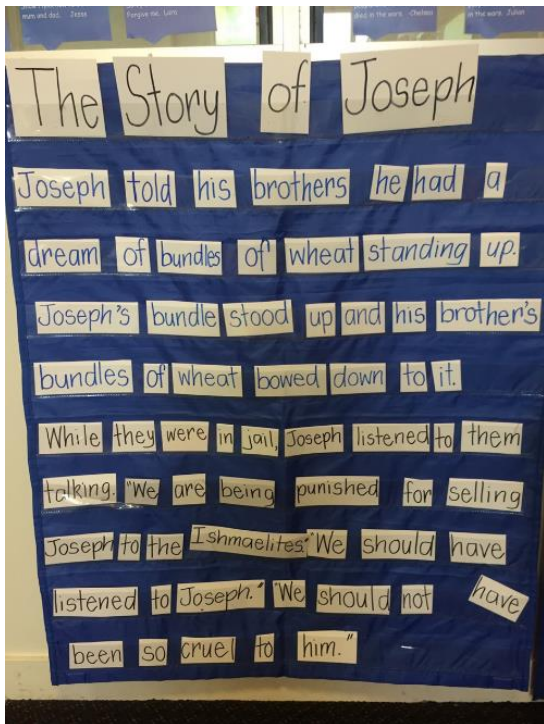 mum and dad. Jesse
Forgive me, Liam
died in the wars. -Chelsea
in the wars. Julian
The Story of Joseph
Joseph told his brothers he had a
dream of bundles of wheat standing up.
Joseph's bundle stood up and his brother's
bundles of wheat bowed down to it.
While they were in jail, Joseph listened to them
talking. "We are being punished for selling
Joseph to the Ishmaelites." "We should have
listened to Joseph." "We should not have
been so cruel to him."